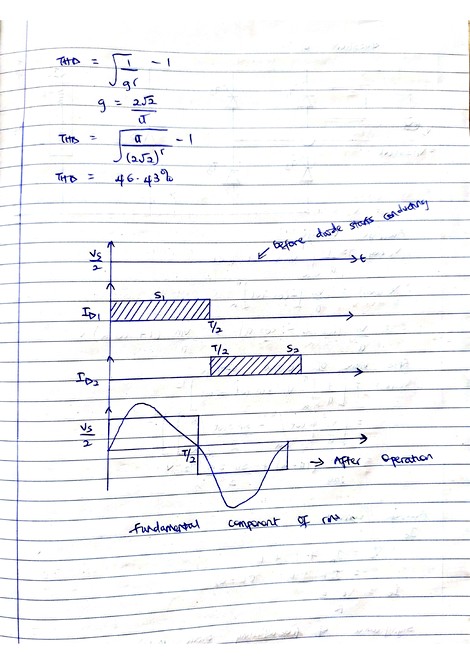 THD = √(1/g² - 1)
g = 2√2/π
THD = √(π/(2√2)² - 1)
THD = 46.43%
before diode starts conducting
Vs/2
t
S1
ID1
T/2
T/2 S2
ID2
Vs/2
T/2
→ After Operation
Fundamental component of rms